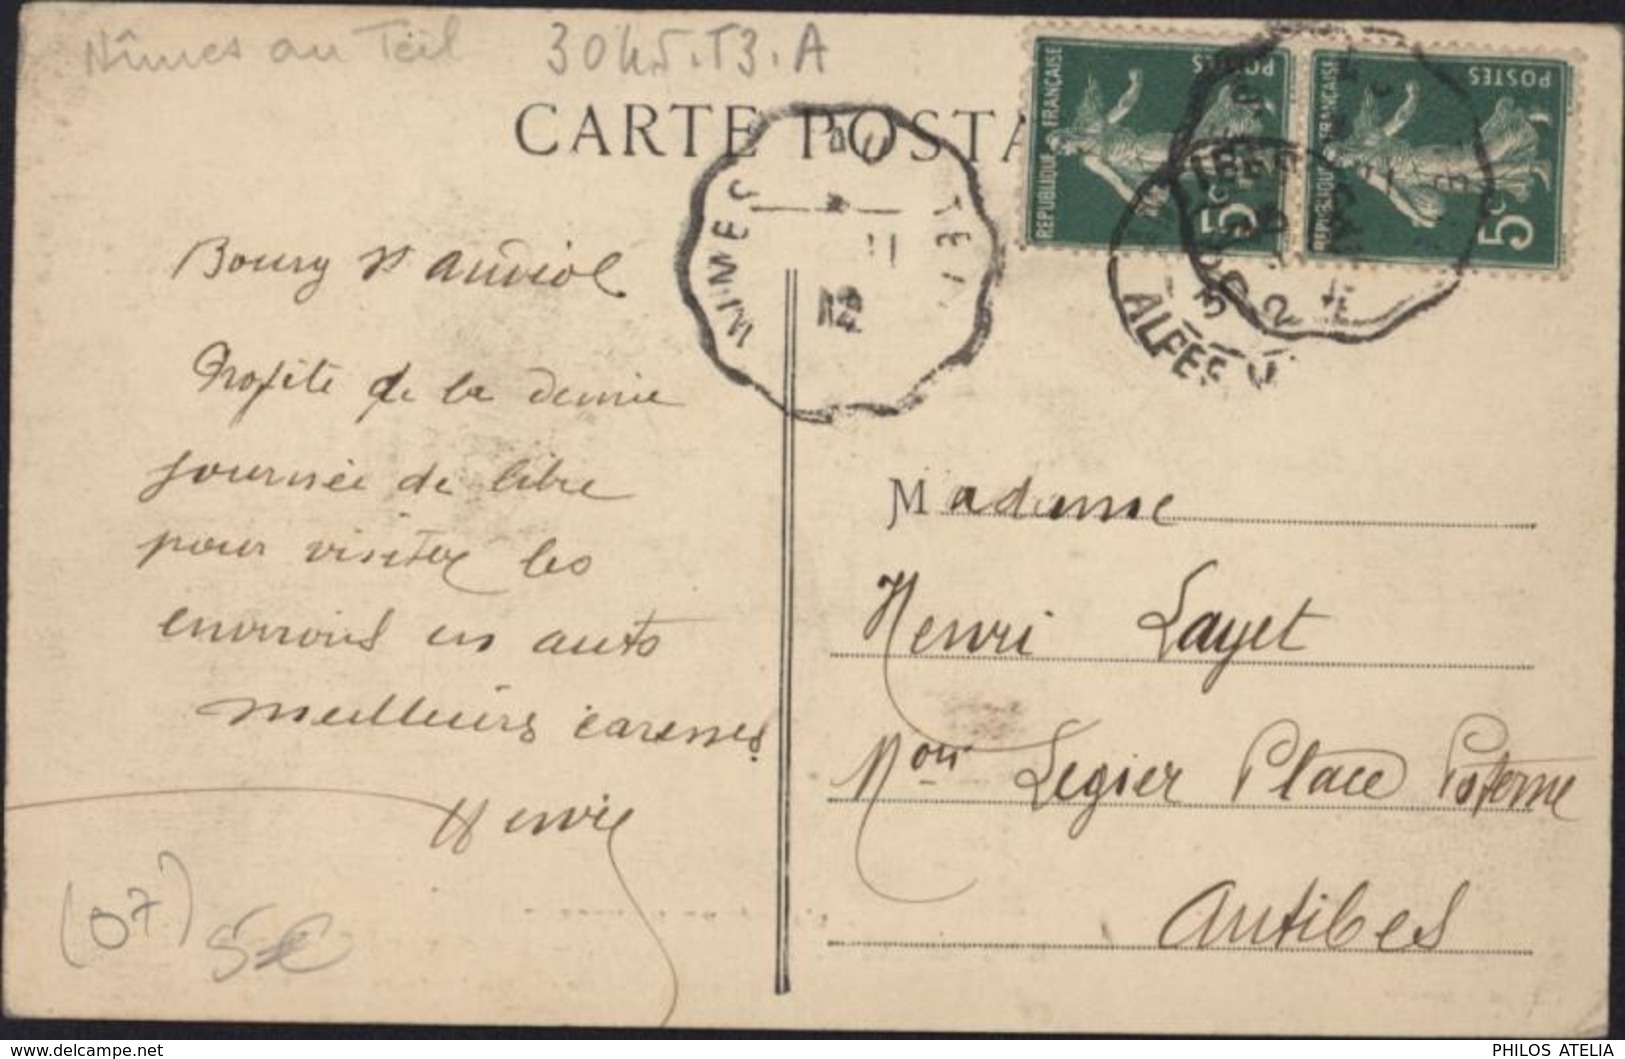 Nîmes au Teil 3045.T3.A
CARTE POSTA
REPUBLIQUE FRANÇAISE
POSTES
5c
REPUBLIQUE FRANÇAISE
POSTES
5c
NIMES AU TEIL
11
12
ALPES
Bourg St Andéol
Profite de la dernière
journée de libre
pour visiter les
environs en auto
meilleurs caresses
Henri
Madame
Henri Layet
Mon Legier Place Poterne
Antibes
(07) 5€
PHILOS ATELIA